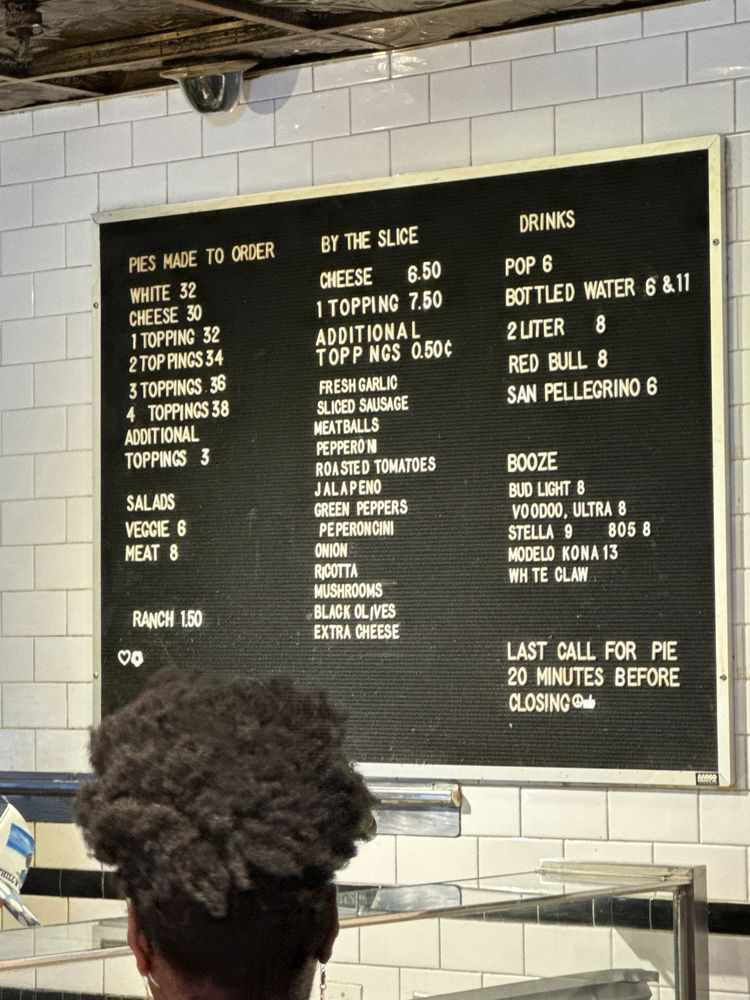 PIES MADE TO ORDER
WHITE 32
CHEESE 30
1 TOPPING 32
2 TOPPINGS 34
3 TOPPINGS 36
4 TOPPINGS 38
ADDITIONAL
TOPPINGS 3
SALADS
VEGGIE 6
MEAT 8
RANCH 1.50
BY THE SLICE
CHEESE 6.50
1 TOPPING 7.50
ADDITIONAL
TOPP NGS 0.50¢
FRESH GARLIC
SLICED SAUSAGE
MEATBALLS
PEPPERONI
ROASTED TOMATOES
JALAPENO
GREEN PEPPERS
PEPERONCINI
ONION
RICOTTA
MUSHROOMS
BLACK OLIVES
EXTRA CHEESE
DRINKS
POP 6
BOTTLED WATER 6 & 11
2 LITER 8
RED BULL 8
SAN PELLEGRINO 6
BOOZE
BUD LIGHT 8
VOODOO, ULTRA 8
STELLA 9 805 8
MODELO KONA 13
WH TE CLAW
LAST CALL FOR PIE
20 MINUTES BEFORE
CLOSING